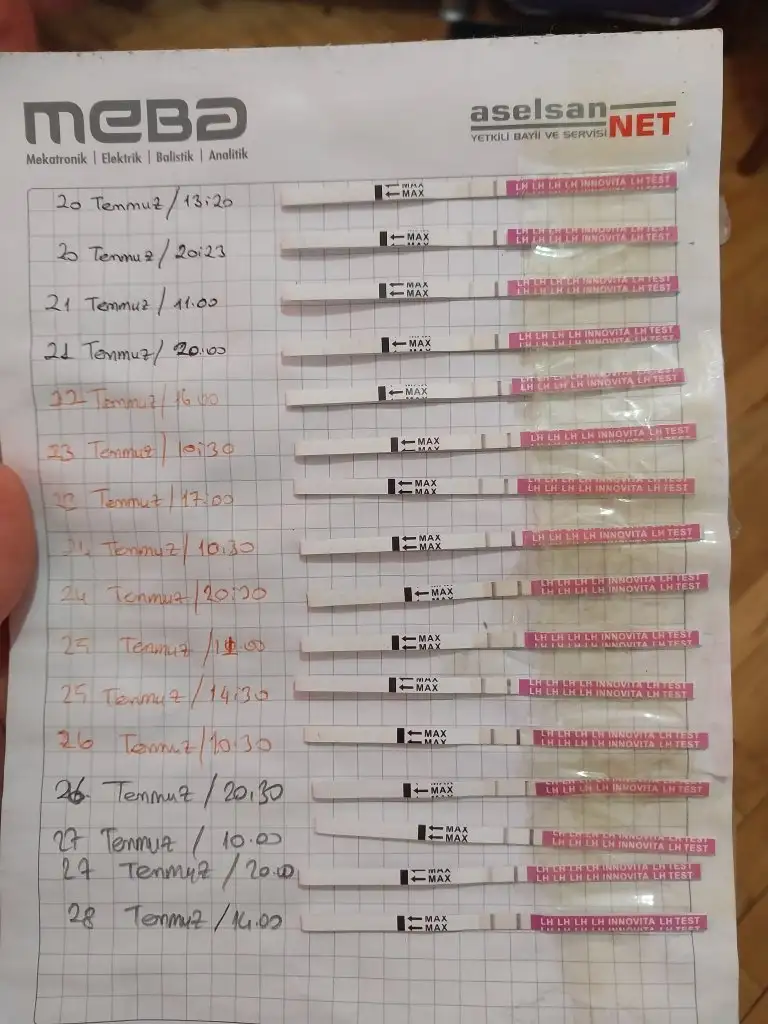 meBa
Mekatronik | Elektrik | Balistik | Analitik
aselsan
YETKİLİ BAYİİ VE SERVİSİ NET
20 Temmuz / 13:20 MAX LH LH LH LH INNOVITA LH TEST
20 Temmuz / 20:23 MAX LH LH LH LH INNOVITA LH TEST
21 Temmuz / 11.00 MAX LH LH LH LH INNOVITA LH TEST
21 Temmuz / 20.00 MAX LH LH LH LH INNOVITA LH TEST
22 Temmuz / 16.00 MAX LH LH LH LH INNOVITA LH TEST
23 Temmuz / 10:30 MAX LH LH LH LH INNOVITA LH TEST
Temmuz / 17:00 MAX LH LH LH LH INNOVITA LH TEST
24 Temmuz / 10:30 MAX LH LH LH LH INNOVITA LH TEST
24 Temmuz / 20:20 MAX LH LH LH LH INNOVITA LH TEST
25 Temmuz / 11.00 MAX LH LH LH LH INNOVITA LH TEST
25 Temmuz / 14:30 MAX LH LH LH LH INNOVITA LH TEST
26 Temmuz / 10:30 MAX LH LH LH LH INNOVITA LH TEST
26 Temmuz / 20:30 MAX LH LH LH LH INNOVITA LH TEST
27 Temmuz / 10.00 MAX LH LH LH LH INNOVITA LH TEST
27 Temmuz / 20.00 MAX LH LH LH LH INNOVITA LH TEST
28 Temmuz / 14.00 MAX LH LH LH LH INNOVITA LH TEST